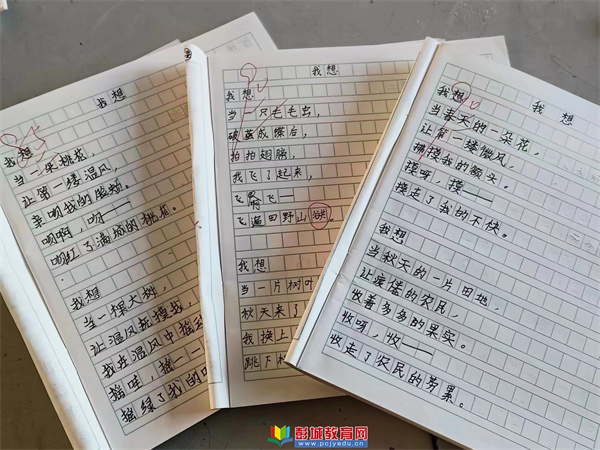 我想
我想
当一朵桃花,
让第一缕温风,
亲吻我的脸颊。
吻啊,吻——
吻红了满城的桃花。
我想
当一棵大树,
让温风抚摸我,
我在温风中摇
摇呀,摇——
摇绿了我的
我想
我想
当一只毛毛虫,
破茧成蝶后,
拍拍翅膀,
我飞了起来,
飞啊飞——
飞遍田野山谷,
我想
当一片树叶
秋天来了
我换上
跳下
我想
我想
当春天的一朵花,
让第一缕微风,
抚摸我的额头。
摸呀,摸——
摸走了我的不快。
我想
当秋天的一片田地,
让疲倦的农民,
收着多多的果实。
收呀,收——
收走了农民的劳累。
彭城教育网
www.pcjyedu.cn